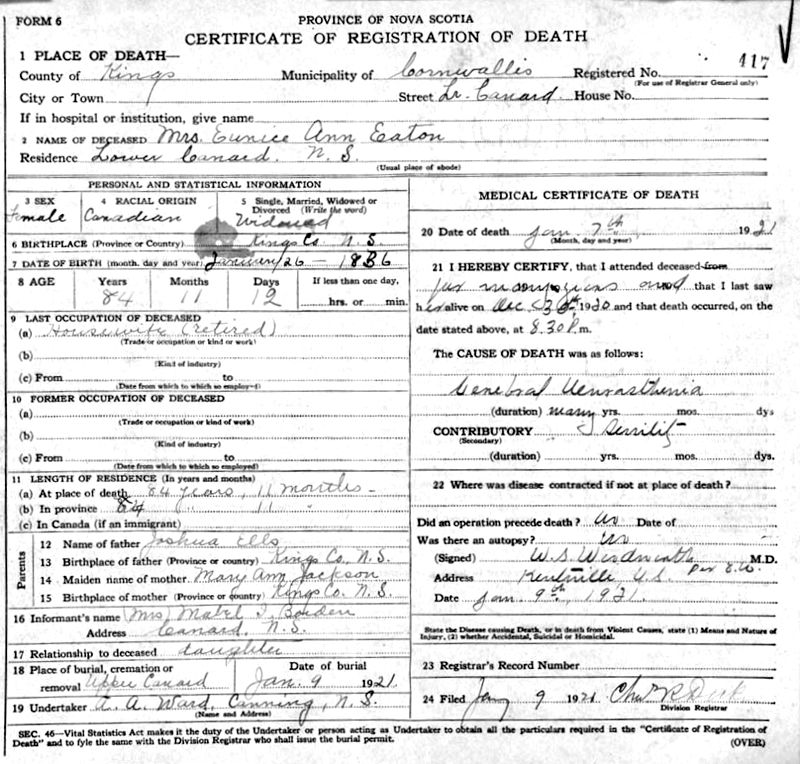 FORM 6
PROVINCE OF NOVA SCOTIA
CERTIFICATE OF REGISTRATION OF DEATH
1 PLACE OF DEATH—
417
County of Kings Municipality of Cornwallis Registered No.
(For use of Registrar General only)
City or Town Street Lr. Canard. House No.
If in hospital or institution, give name
2 NAME OF DECEASED Mrs. Eunice Ann Eaton
Residence Lower Canard. N. S.
(Usual place of abode)
PERSONAL AND STATISTICAL INFORMATION
3 SEX 4 RACIAL ORIGIN 5 Single, Married, Widowed or Divorced (Write the word)
Female Canadian Widowed
6 BIRTHPLACE (Province or Country) Kings Co. N. S.
7 DATE OF BIRTH (month, day and year) January 26 — 1836
8 AGE Years Months Days If less than one day,
84 11 12 hrs. or min.
9 LAST OCCUPATION OF DECEASED
(a) Housewife (retired)
(Trade or occupation or kind of work)
(b)
(Kind of industry)
(c) From to
(Date from which to which so employed)
10 FORMER OCCUPATION OF DECEASED
(a)
(Trade or occupation or kind of work)
(b)
(Kind of industry)
(c) From to
(Date from which to which so employed)
11 LENGTH OF RESIDENCE (In years and months)
(a) At place of death 84 years, 11 months —
(b) In province 84 " 11 "
(c) In Canada (if an immigrant)
Parents
12 Name of father Joshua Ells
13 Birthplace of father (Province or country) Kings Co, N. S.
14 Maiden name of mother Mary Ann Jackson
15 Birthplace of mother (Province or country) Kings Co. N. S.
16 Informant's name (Mrs) Mabel I. Borden
Address Canard, N. S.
17 Relationship to deceased daughter
18 Place of burial, cremation or removal Upper Canard Date of burial Jan. 9 1921
19 Undertaker A. A. Ward, Canning, N. S.
(Name and Address)
MEDICAL CERTIFICATE OF DEATH
20 Date of death Jan. 7th 1921
(Month, day and year)
21 I HEREBY CERTIFY, that I attended deceased from
for many years and that I last saw
her alive on Dec. 1920 and that death occurred, on the
date stated above, at 8.30 P. m.
The CAUSE OF DEATH was as follows:
Cerebral Neurasthenia
(duration) many yrs. mos. dys
CONTRIBUTORY Senility
(Secondary)
(duration) yrs. mos. dys.
22 Where was disease contracted if not at place of death?
Did an operation precede death? no Date of
Was there an autopsy? no
(Signed) W. S. Woodworth M.D.
Address Kentville, N.S.
Date Jan. 9th, 1921.
State the Disease causing Death, or in death from Violent Causes, state (1) Means and Nature of Injury, (2) whether Accidental, Suicidal or Homicidal.
23 Registrar's Record Number
24 Filed Jany 9 1921
Division Registrar
SEC. 46—Vital Statistics Act makes it the duty of the Undertaker or person acting as Undertaker to obtain all the particulars required in the "Certificate of Registration of
Death" and to fyle the same with the Division Registrar who shall issue the burial permit. (OVER)